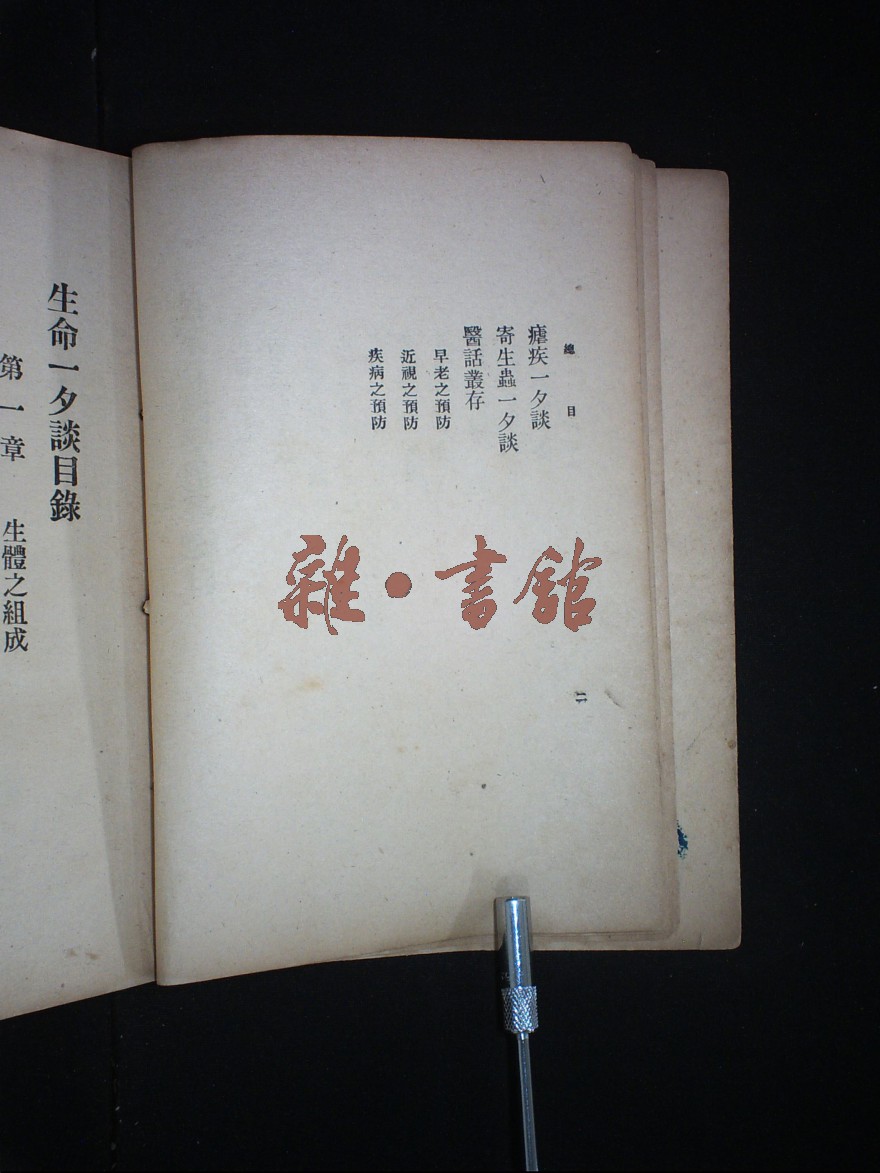 總目
二
瘧疾一夕談
寄生蟲一夕談
醫話叢存
早老之預防
近視之預防
疾病之預防
雜·書館
生命一夕談目錄
第一章 生體之組成